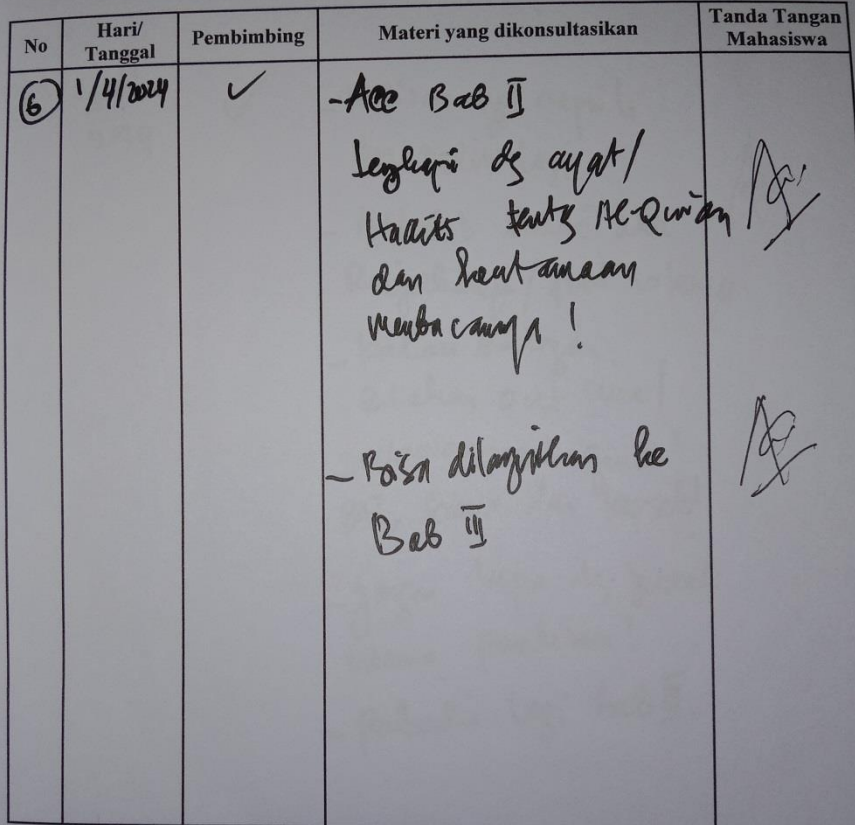 No
Hari/
Tanggal
Pembimbing
Materi yang dikonsultasikan
Tanda Tangan
Mahasiswa
6
1/4/2024
✓
- Acc Bab II
Lengkapi dg ayat/
Hadits tentg Al-Qur'an
dan keutamaan
membacanya !
- Bisa dilanjutkan ke
Bab III